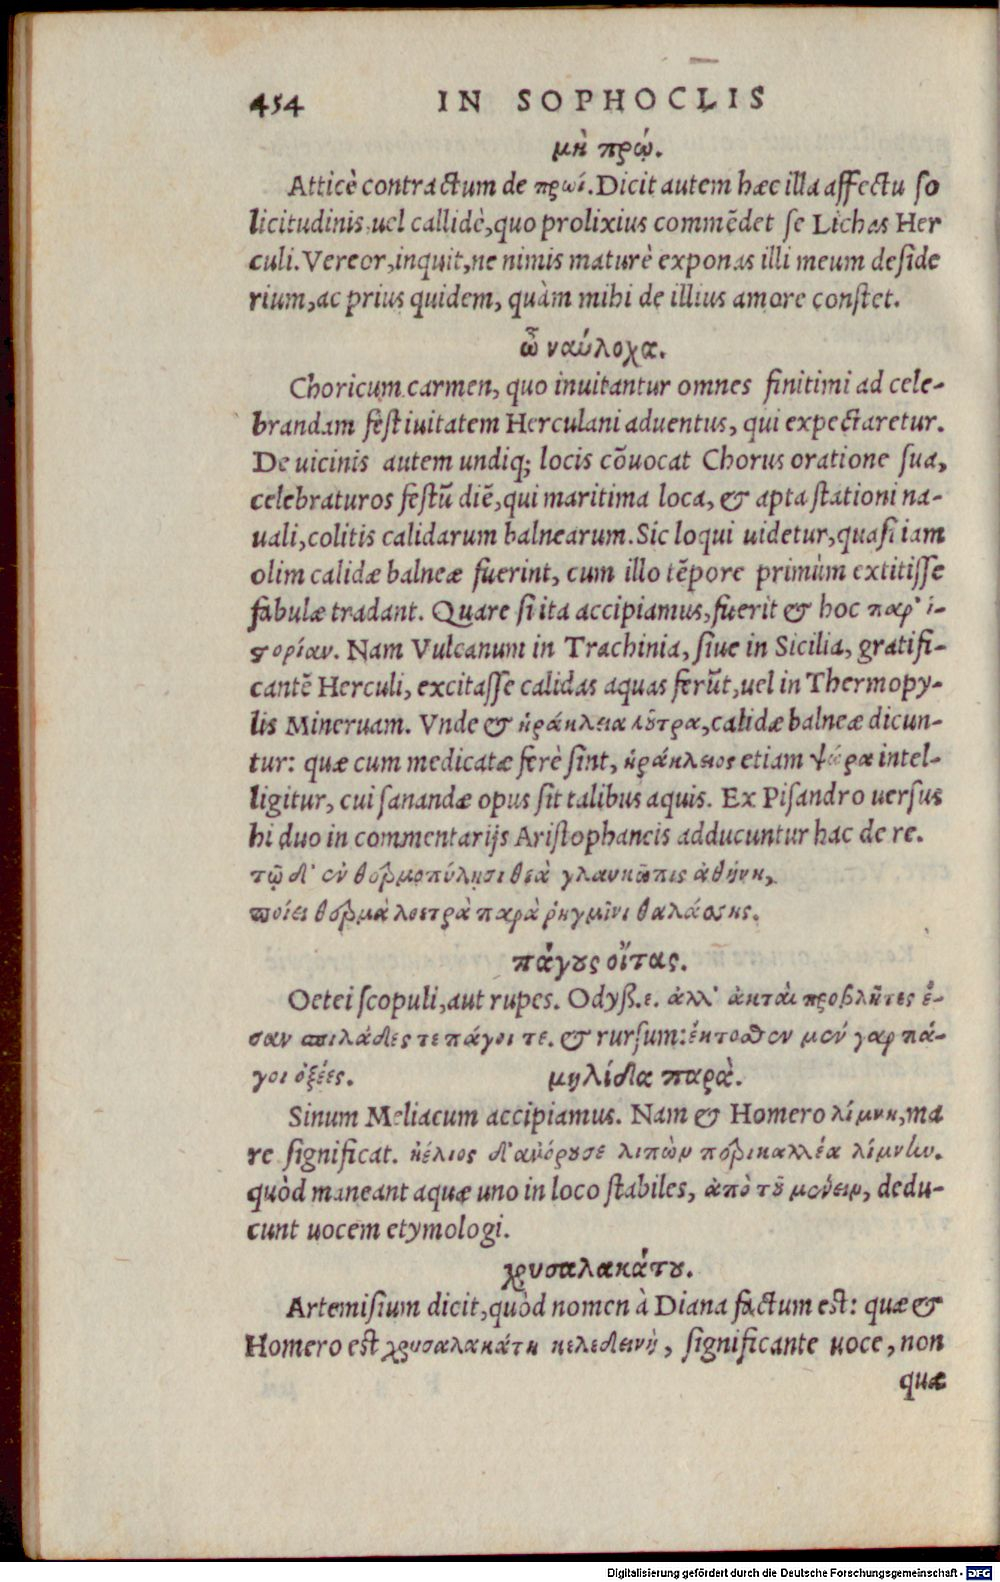 454 IN SOPHOCLIS
μὴ πρῴ.
Atticè contractum de πρωί. Dicit autem hæc illa affectu so
licitudinis, uel callidè, quo prolixius commēdet se Lichas Her
culi. Vereor, inquit, ne nimis maturè exponas illi meum deside
rium, ac prius quidem, quàm mihi de illius amore constet.
ὦ ναύλοχα.
Choricum carmen, quo inuitantur omnes finitimi ad cele-
brandam festiuitatem Herculani aduentus, qui expectaretur.
De uicinis autem undiq; locis cōuocat Chorus oratione sua,
celebraturos festū diē, qui maritima loca, & apta stationi na-
uali, colitis calidarum balnearum. Sic loqui uidetur, quasi iam
olim calidæ balneæ fuerint, cum illo tēpore primùm extitisse
fabulæ tradant. Quare si ita accipiamus, fuerit & hoc παρ' ἱ-
ϛορίαν. Nam Vulcanum in Trachinia, siue in Sicilia, gratifi-
cantē Herculi, excitasse calidas aquas ferūt, uel in Thermopy-
lis Mineruam. Vnde & ἡράκλεια λȣτρα, calidæ balneæ dicun-
tur: quæ cum medicatæ ferè sint, ἡράκλειος etiam ψώρα intel-
ligitur, cui sanandæ opus sit talibus aquis. Ex Pisandro uersus
hi duo in commentarijs Aristophaneis adducuntur hac de re.
τῷ δ' ἐν θερμοπύλησι θεὰ γλαυκῶπις ἀθήνη,
ποίει θερμὰ λοετρὰ παρὰ ῥηγμῖνι θαλάσσης.
πάγȣς οἴτας.
Oetei scopuli, aut rupes. Odyß.ε. ἀλλ' ἀκταὶ προβλῆτες ἔ-
σαν σπιλάδες τε πάγοι τε. & rursum: ἔκτοσθεν μὲν γαρ πά-
γοι ὀξέες.
μηλίδα παρὰ.
Sinum Meliacum accipiamus. Nam & Homero λίμνη, ma
re significat. ἠέλιος δ' ἀνόρȣσε λιπὼν περικαλλέα λίμνην.
quòd maneant aquæ uno in loco stabiles, ἀπὸ τȣ͂ μένειν, dedu-
cunt uocem etymologi.
χρυσαλακάτȣ.
Artemisium dicit, quòd nomen à Diana factum est: quæ &
Homero est χρυσαλακάτη κελεδεινὴ, significante uoce, non
quæ
Digitalisierung gefördert durch die Deutsche Forschungsgemeinschaft - DFG